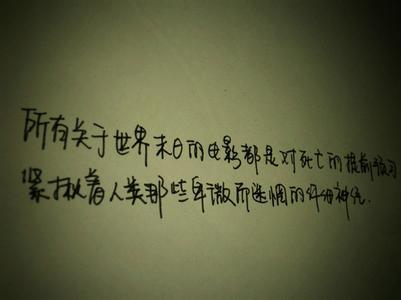 所有关于世界末日的电影都是对死亡的提前预习
紧揪着人类那些卑微而迷惘的纤细神经.